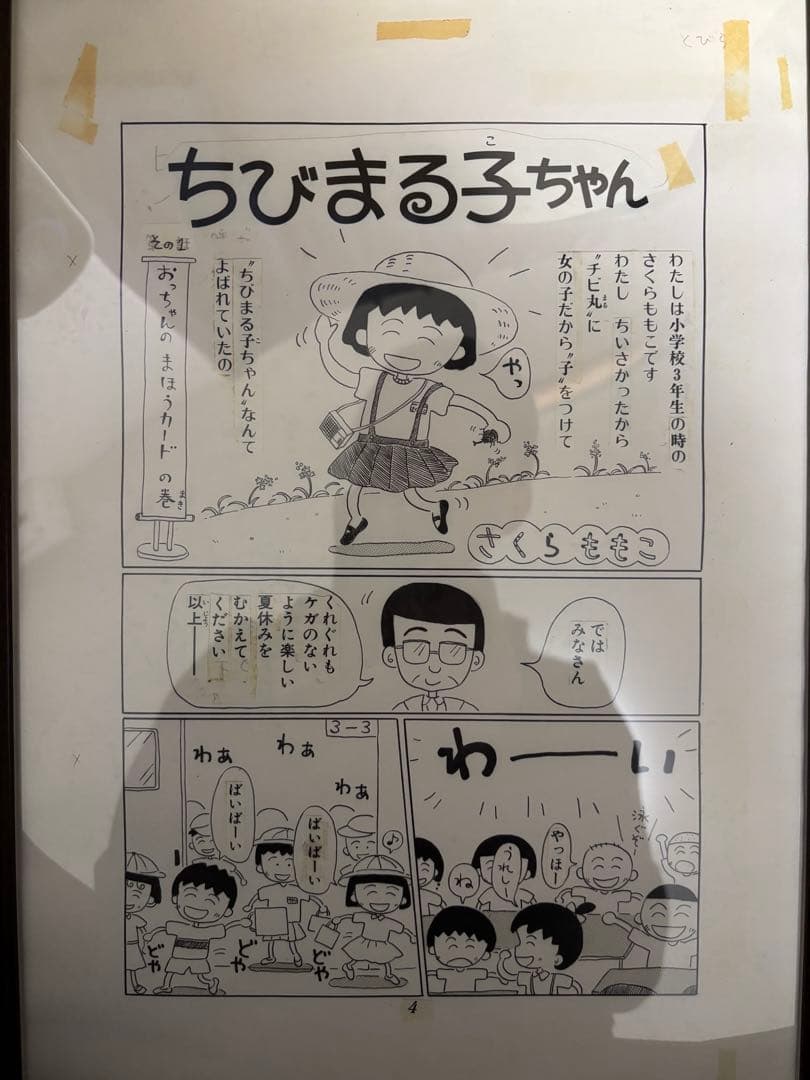 とびら
ちびまる子ちゃん
こ
わたしは小学校3年生の時の
さくらももこです
わたし ちいさかったから
〝チビ丸〟に
まる
女の子だから〝子〟をつけて
〝ちびまる子ちゃん〟なんて
こ
よばれていたの
やっ
その1
おっちゃんのまほうカードの巻
まき
さくらももこ
では
みなさん
くれぐれも
ケガのない
ように楽しい
夏休みを
むかえて
ください
以上——
いじょう
わーい
泳ぐぞー
やっほー
うれしー
ね
3-3
わぁ
わぁ
わぁ
ばいばーい
ばいばーい
♪
どや
どや
どや
4